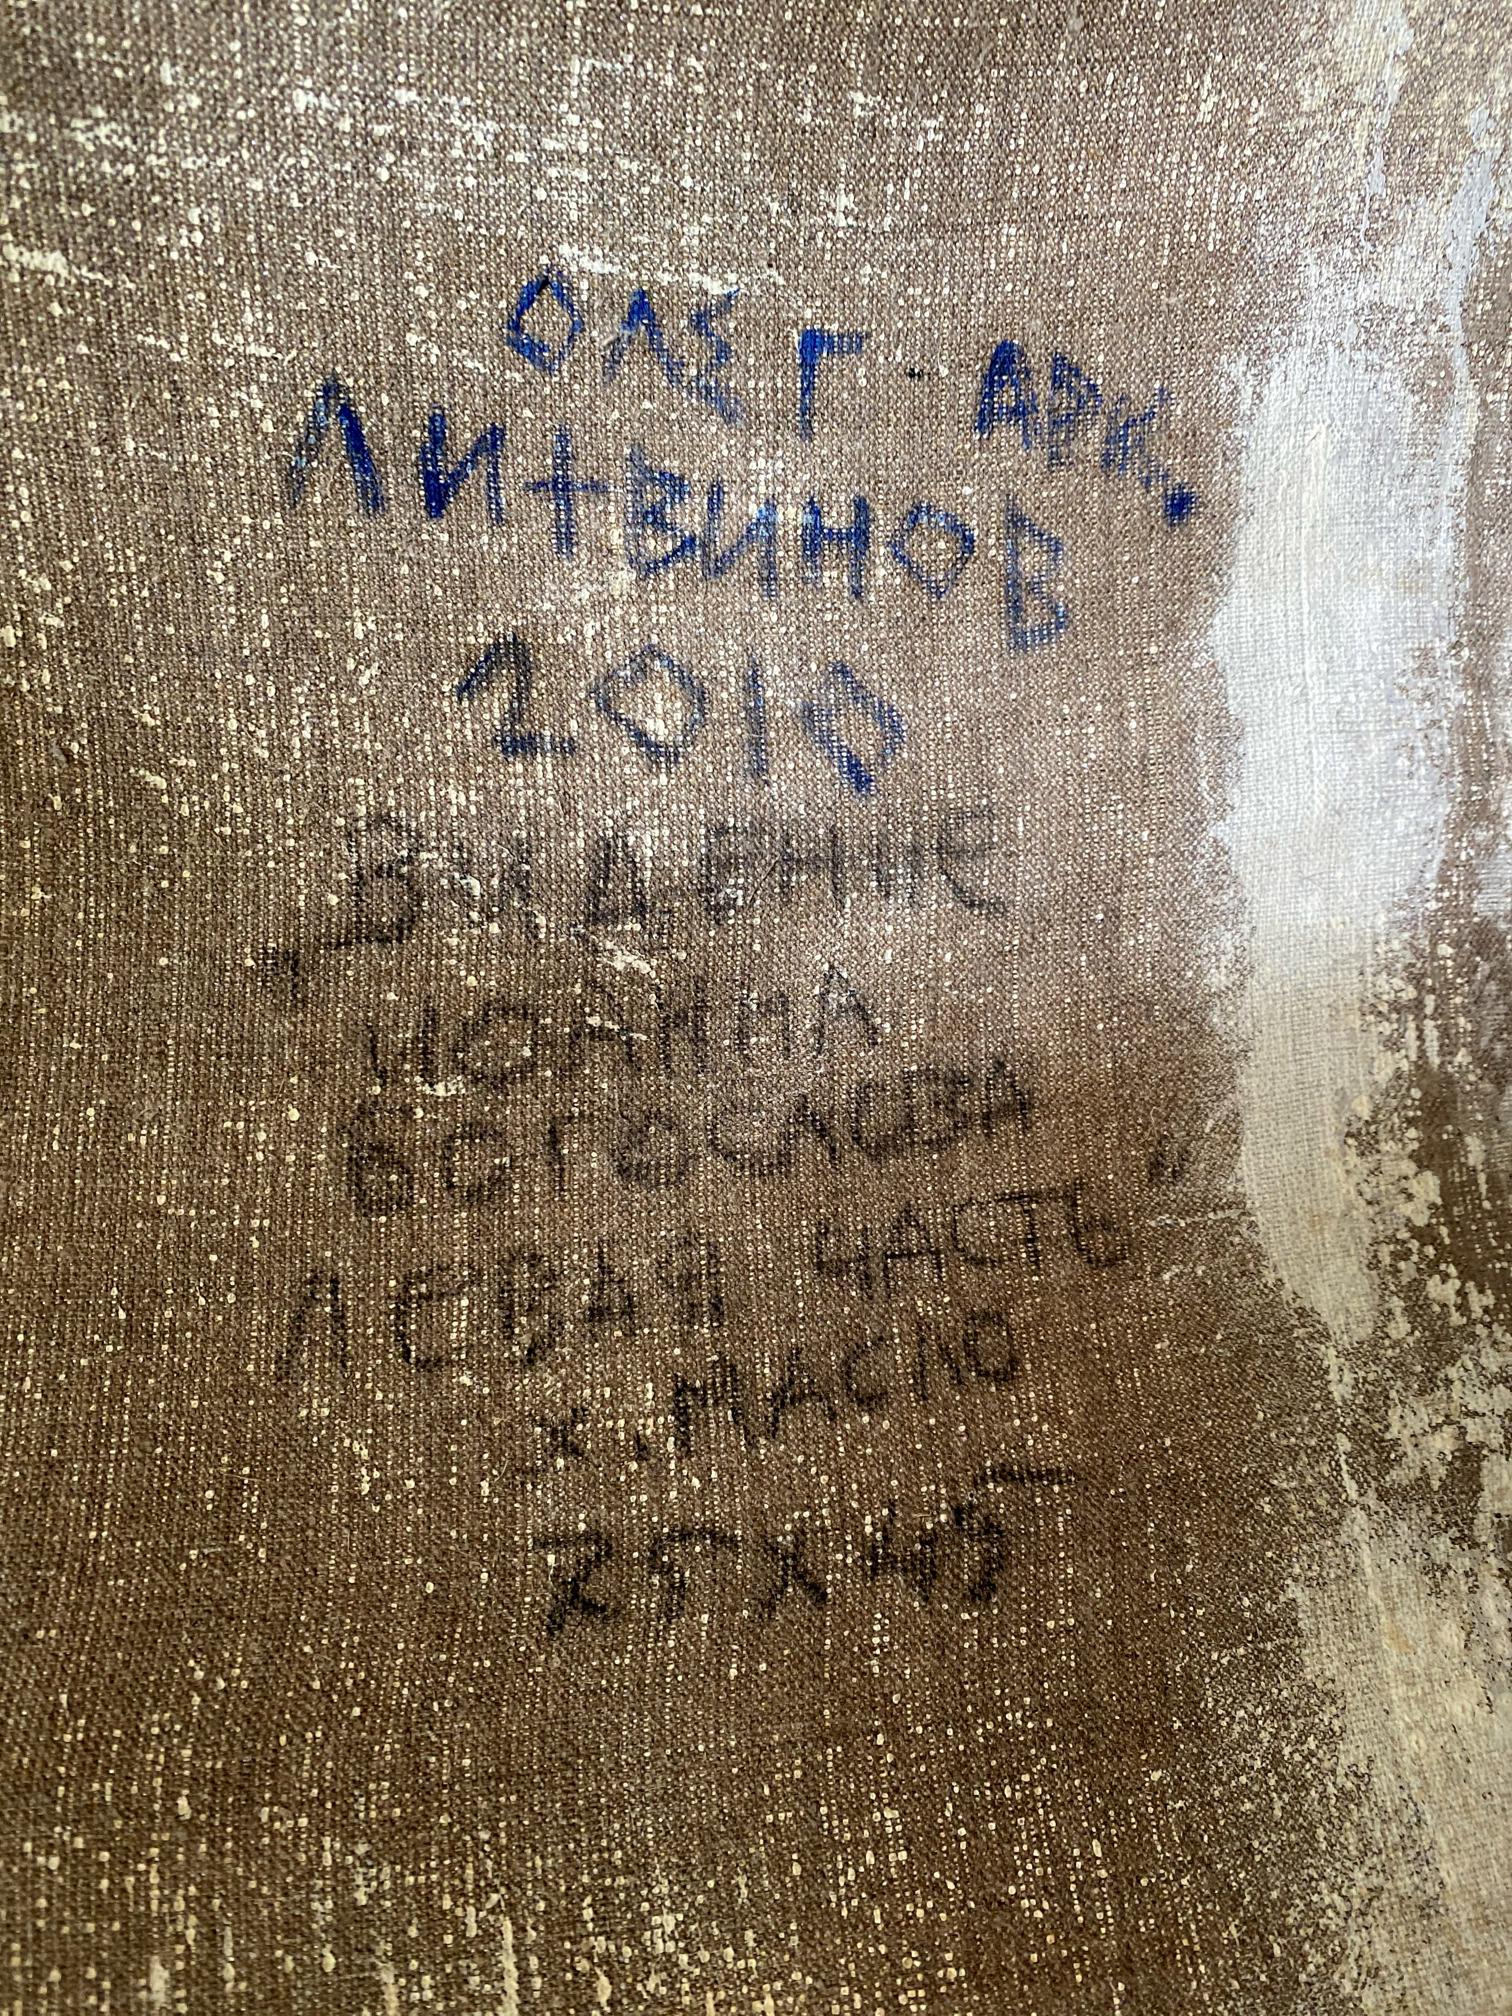 ОЛЕГ АРК.
ЛИТВИНОВ
2010
„ВИДЕНИЕ
ИОАННА
БОГОСЛОВА
ЛЕВАЯ ЧАСТЬ“
х. МАСЛО
75Х45